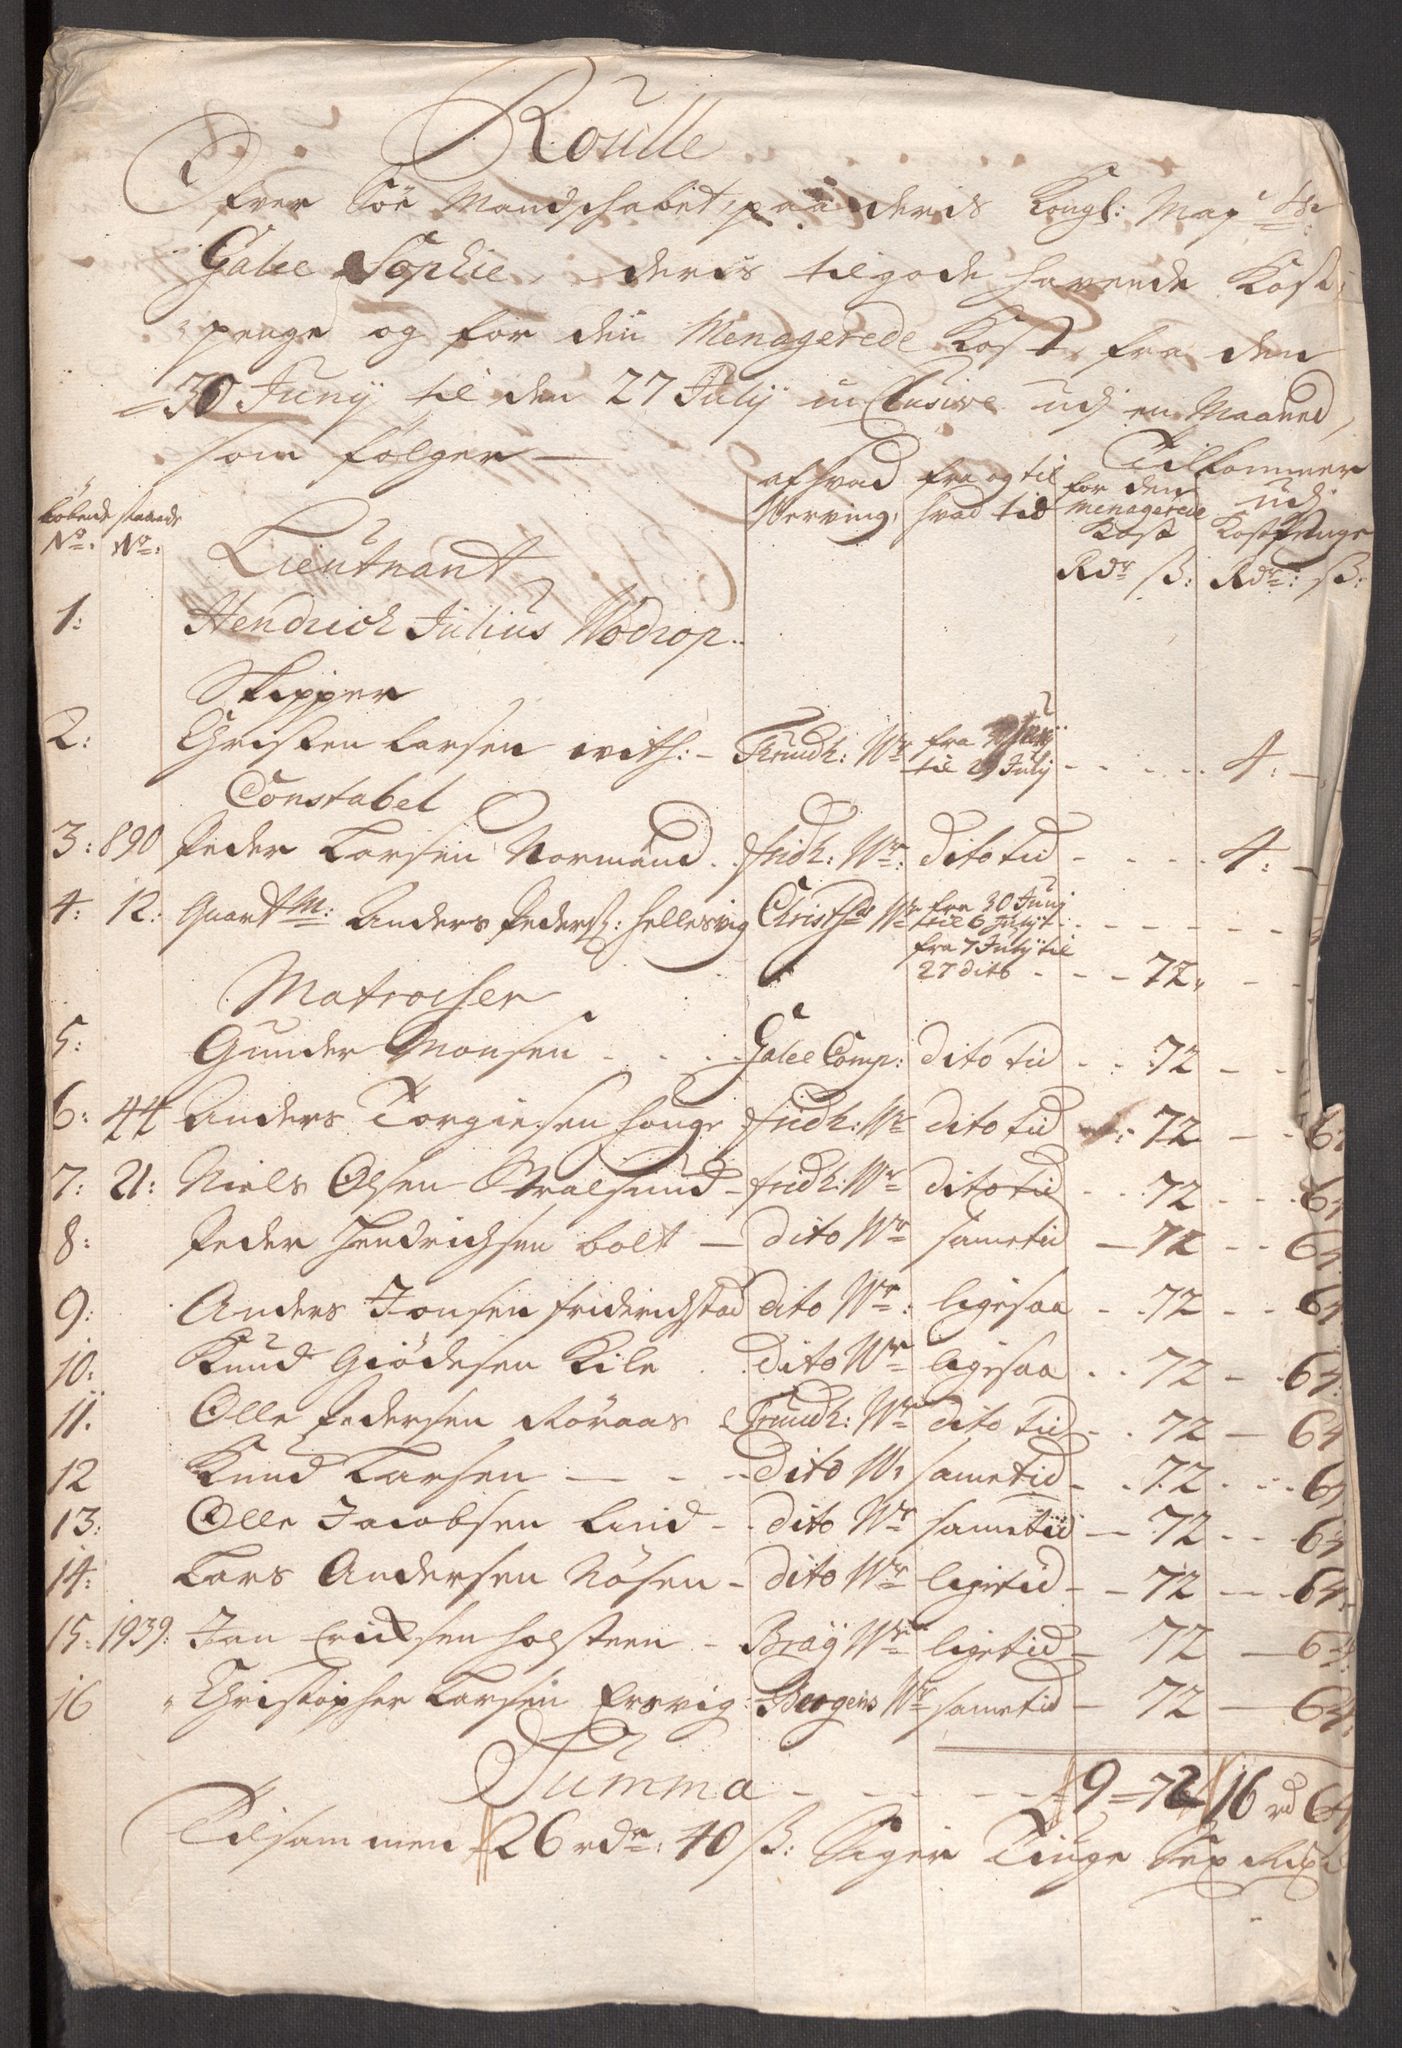 Roulle
Ofver Söe Mandschabet, paa deris Kongl: Maj<sup>ts</sup>:
Galee Sophie, deris tilgode havende Kost
penge og for den Menagerede Kost, fra den
30 Junij til den 27 Julij inClusive udj en Maaned,
som følger —
løbende staaende af hvad fra og til for den Tilkommer
No: No: Werving: hvad tid menagerede udj
Kost Kostpenge
Rdr ß: Rdr: ß:
Lieutnant
1: Hendrich Julius Wodrop
Skipper
2: Christen Larsen with: - Trundh: Wr fra 30 Junij til 27 Julij - - - 4: -
Constabel
3: 890 Peder Larsen Normand fridh: Wr: dito tid - - - 4: -
4: 12: QuartM: Anders Peders: Hellesvig Christs Wr fra 30 Junij
til 6 Julij
fra 7 Julij til
27 dito - - - 72,
Matroser
5: Gunder Monsen Galee Comp: dito tid - - 72 - -
6: 44 Anders Torgiesen Houge fridh: Wr dito tid 72 - - 64
7: 21: Niels Olsen Stralsund - fridh: Wr dito tid - - 72 - - 64
8: Peder Hendrichsen bolt - dito Wr sametid - 72 - - 64
9: Anders Jonsen friderichstad dito Wr: ligesaa - - 72 - - 64
10: Knud Giödesen Kile dito Wr ligesaa - - 72 - - 64
11. Olle Pedersen Röraas Trundh: Wr dito tid - - 72 - 64
12 Knud Larsen - - - dito Wr sametid - - 72 - - 64
13: Olle Jacobsen Lind - - dito Wr sametid - 72 - - 64
14: Lars Andersen Nösen - dito Wr ligetid - - 72 - - 64
15: 1939: Jan Ericksen holsteen - Braÿ Wr ligetid - 72 - 64
16 Christopher Larsen Ersvig: Bergens Wr sametid - 72 - 64
Summa - - - - 9 = 72 16 rd 64
Tilsammen 26 rdr: 40 ß: Siger Tiuge Sex